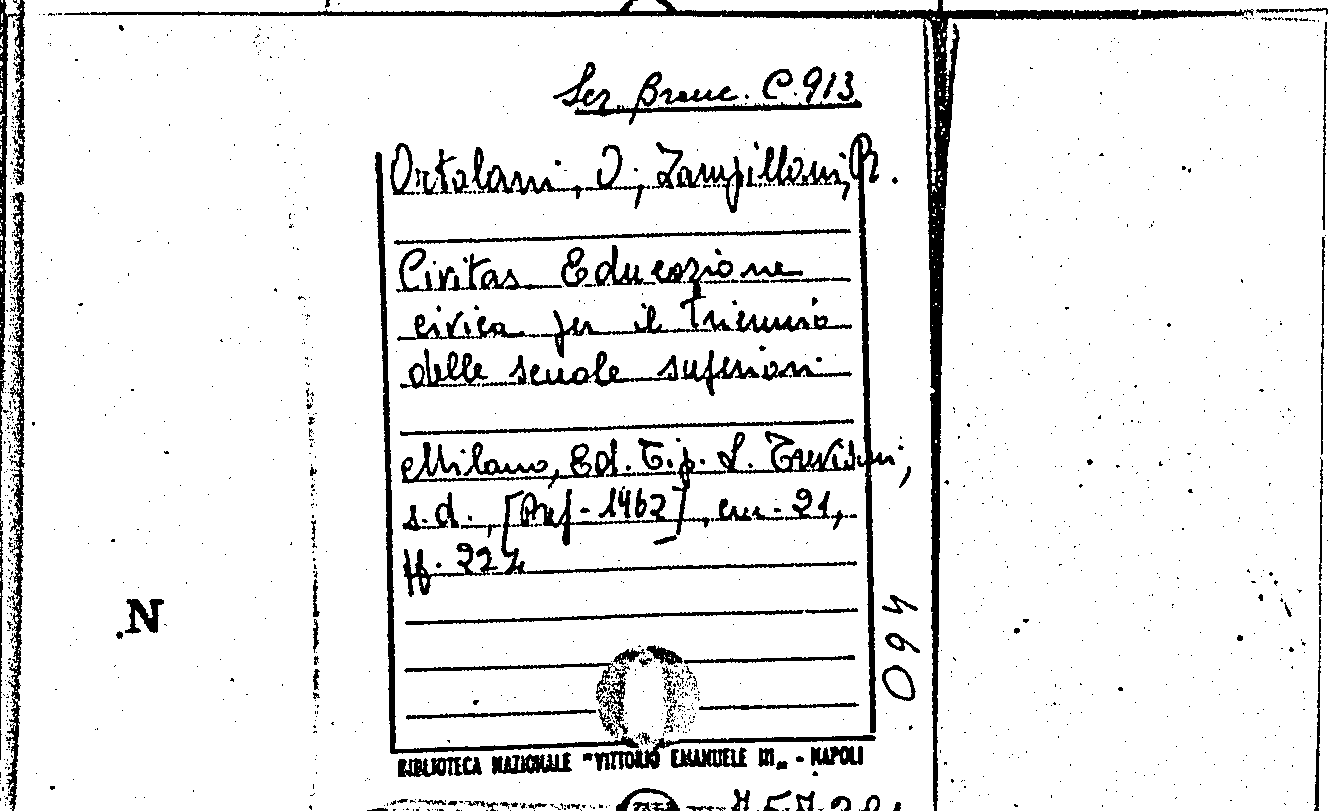 Sez. Brauc. C. 913
Ortolani, O; Zampilloni, R.
Civitas Educazione
civica per il triennio
delle scuole superiori
Milano, Ed. Tip. L. Trevisini,
s.d., [Pref. 1962], cm. 21,
pp. 222
N
094
BIBLIOTECA NAZIONALE "VITTORIO EMANUELE III" - NAPOLI